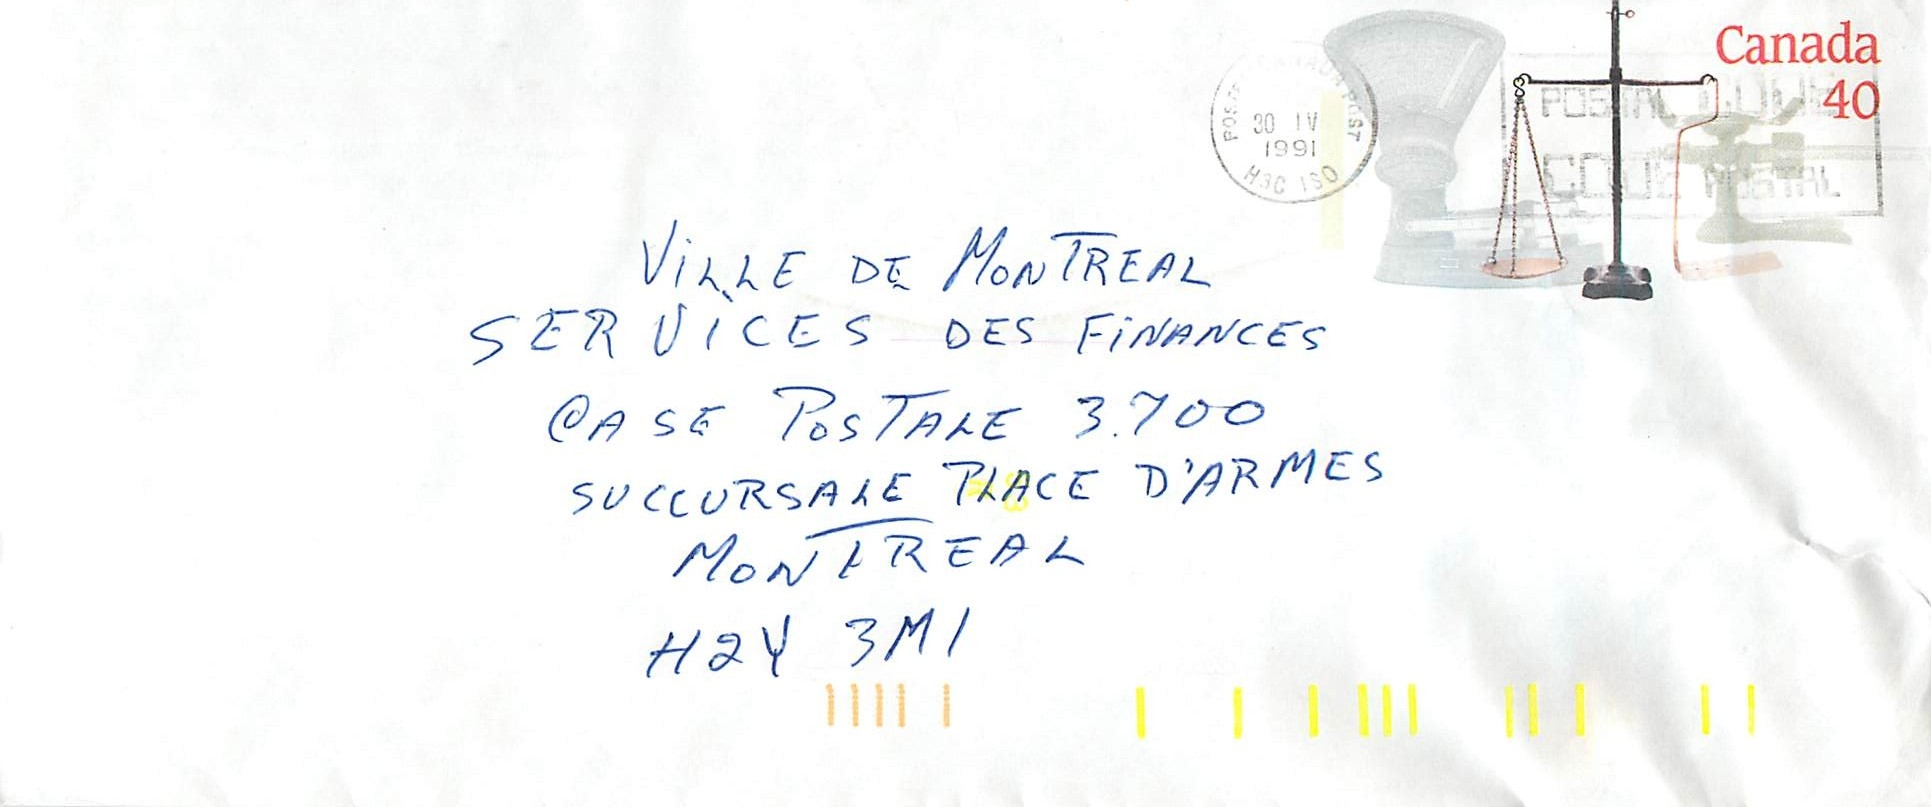 Canada
40
POSTE CANADA POST
30 IV
1991
H3C 1S0
POSTAL CODE
CODE POSTAL
VILLE DE MONTREAL
SERVICES DES FINANCES
CASE POSTALE 3.700
SUCCURSALE PLACE D'ARMES
MONTREAL
H2Y 3M1